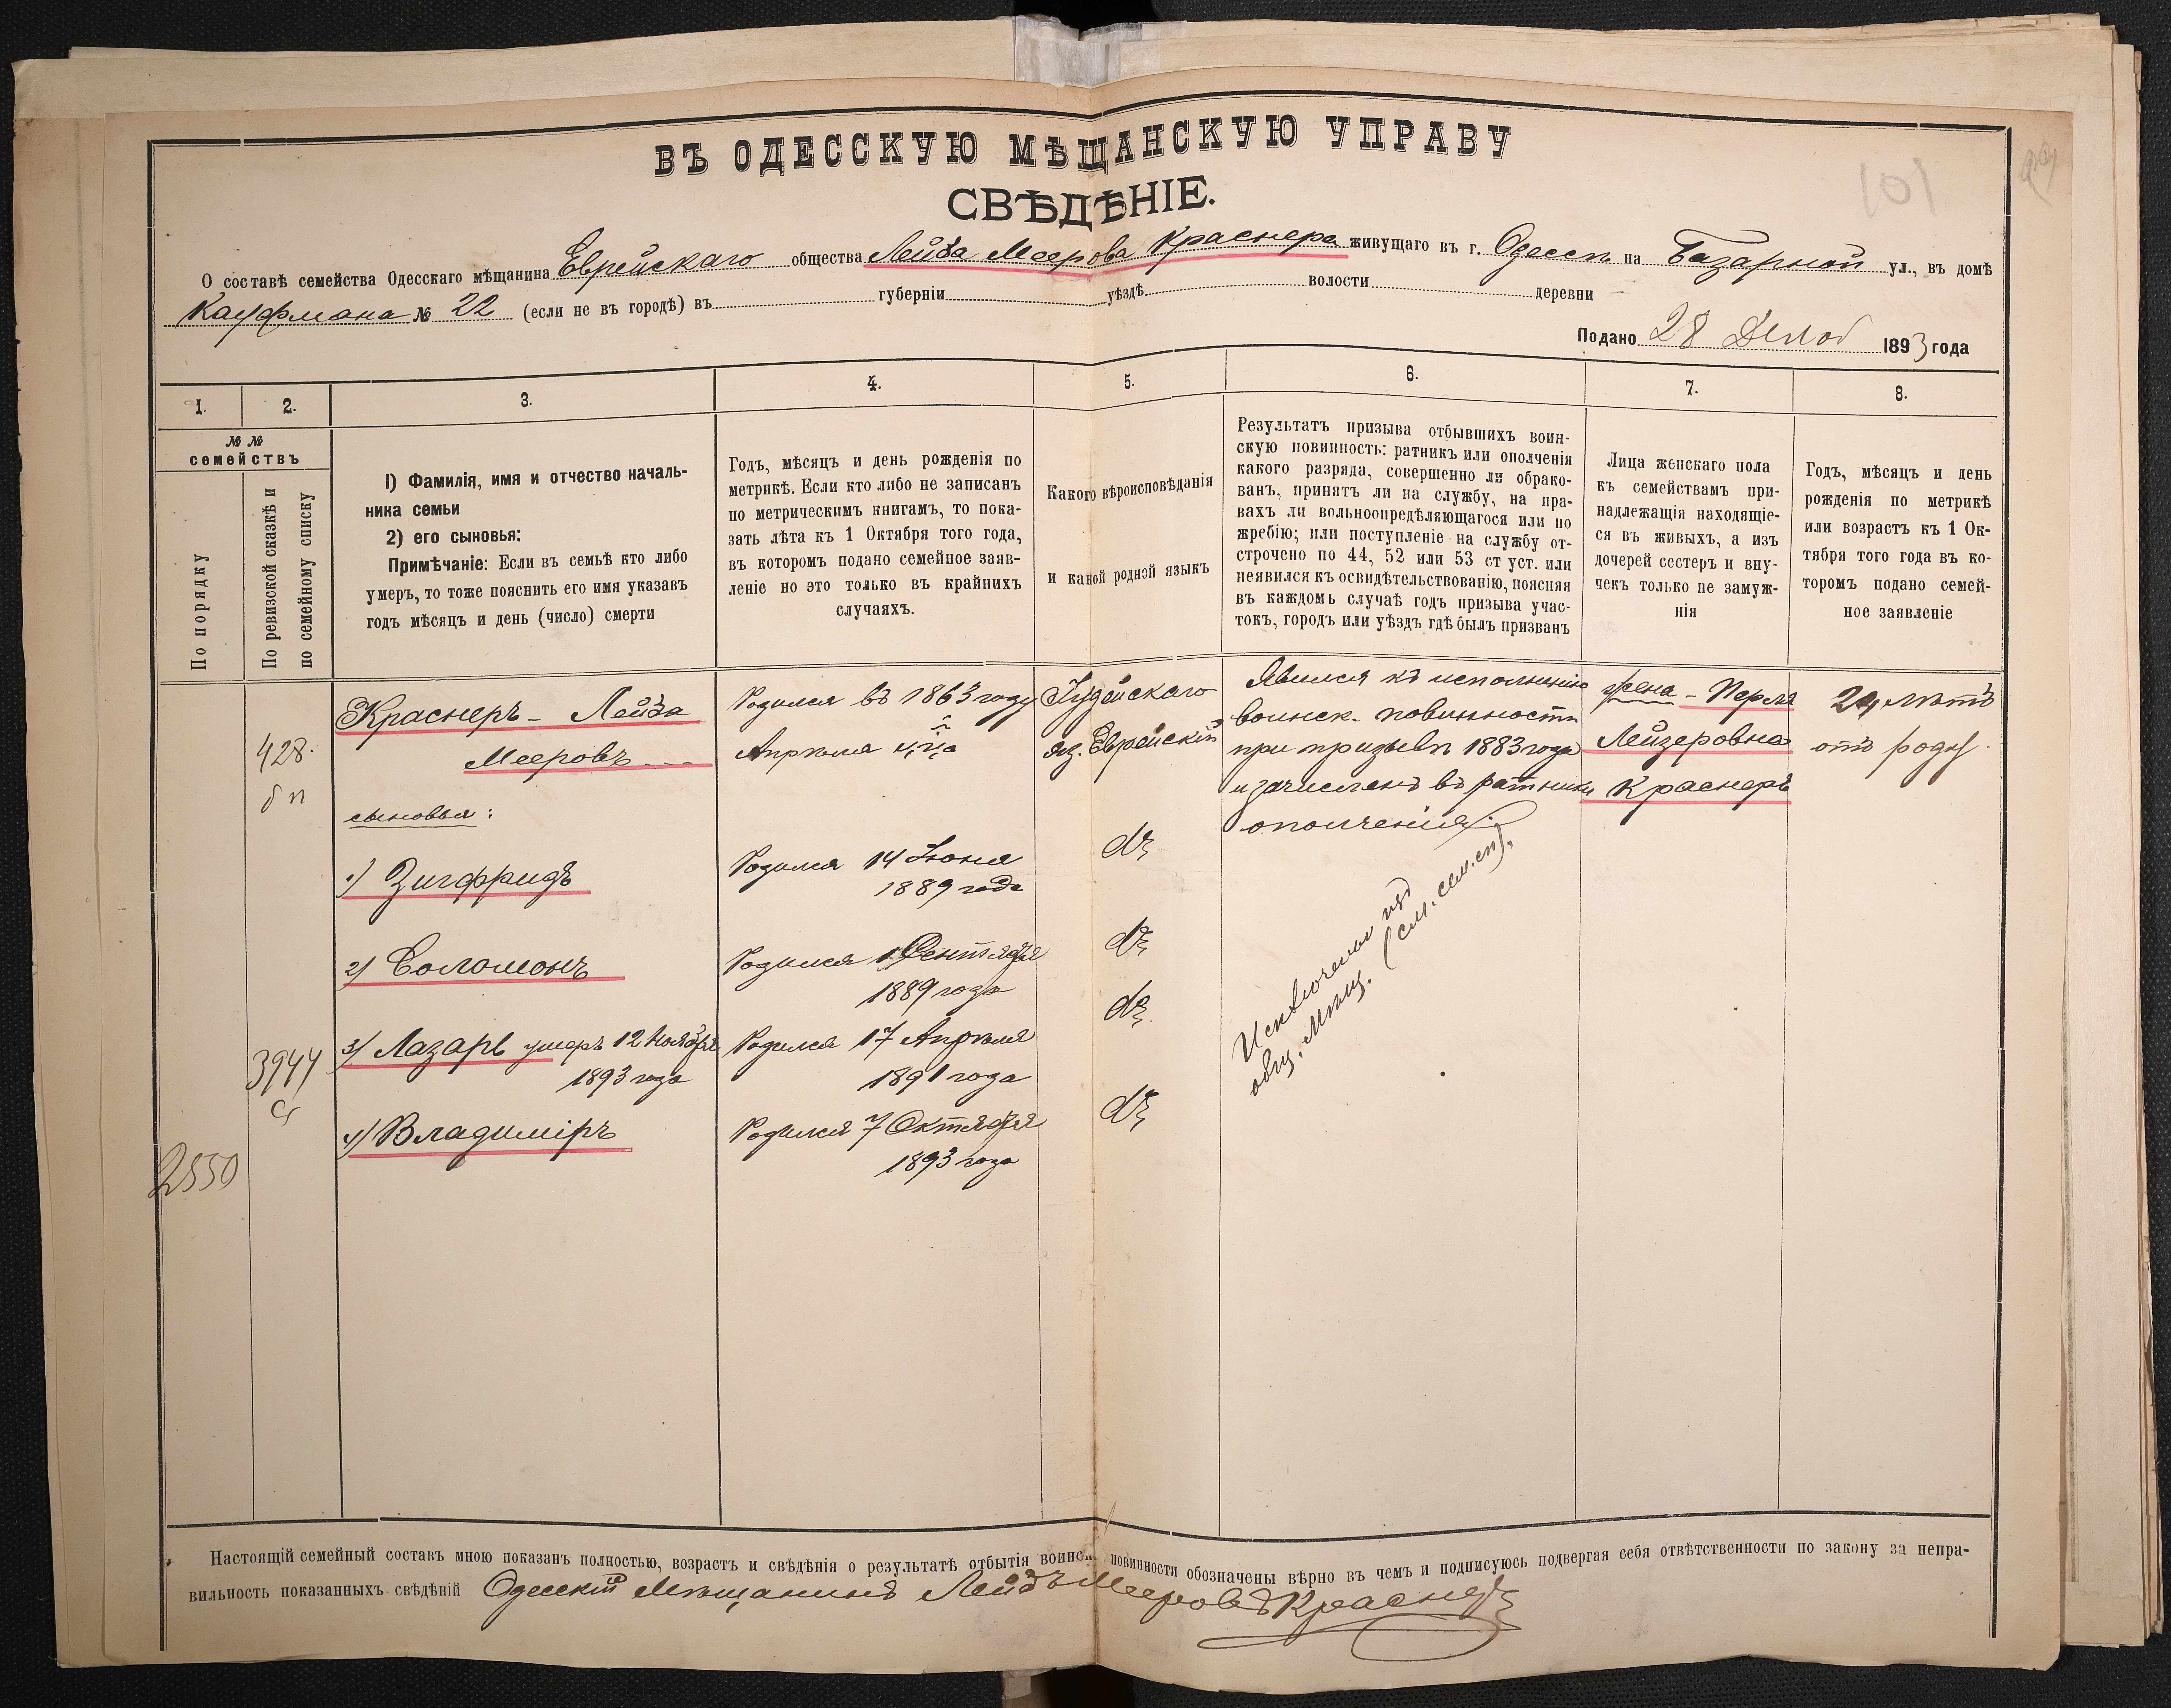 ВЪ ОДЕССКУЮ МѢЩАНСКУЮ УПРАВУ
СВѢДѢНІЕ.
101
О составѣ семейства Одесскаго мѣщанина Еврейскаго общества Лейба Меерова Краснера живущаго въ г. Одессѣ на Базарной ул., въ домѣ
Кауфмана № 22 (если не въ городѣ) въ губерніи уѣздѣ волости деревни
Подано 28 1893 года
1. 2. 3. 4. 5. 6. 7. 8.
№ №
семействъ
По порядку
По ревизской сказкѣ и
по семейному списку
1) Фамилія, имя и отчество началь-
ника семьи
2) его сыновья:
Примѣчаніе: Если въ семьѣ кто либо
умеръ, то тоже пояснить его имя указавъ
годъ мѣсяцъ и день (число) смерти
Годъ, мѣсяцъ и день рожденія по
метрикѣ. Если кто либо не записанъ
по метрическимъ книгамъ, то пока-
зать лѣта къ 1 Октября того года,
въ которомъ подано семейное заяв-
леніе но это только въ крайнихъ
случаяхъ.
Какого вѣроисповѣданія
и какой родной языкъ
Результатъ призыва отбывшихъ воин-
скую повинность: ратникъ или ополченія
какого разряда, совершенно ли обрако-
ванъ, принятъ ли на службу, на пра-
вахъ ли вольноопредѣляющагося или по
жребію; или поступленіе на службу от-
строчено по 44, 52 или 53 ст уст. или
неявился къ освидѣтельствованію, поясняя
въ каждомъ случаѣ годъ призыва учас-
токъ, городъ или уѣздъ гдѣ былъ призванъ
Лица женскаго пола
къ семействамъ при-
надлежащія находящіе-
ся въ живыхъ, а изъ
дочерей сестеръ и вну-
чекъ только не замуж-
нія
Годъ, мѣсяцъ и день
рожденія по метрикѣ
или возрастъ къ 1 Ок-
тября того года въ ко-
торомъ подано семей-
ное заявленіе
428.
бп
3944
2550
Краснеръ - Лейба
Мееровъ
сыновья:
1) Зигфридъ
2) Соломонъ
3) Лазарь умеръ 12 Ноября
1893 года
4) Владиміръ
Родился въ 1863 году
Апрѣля
Родился 14 Іюня
1889 года
Родился Сентября
1889 года
Родился 17 Апрѣля
1891 года
Родился 7 Октября
1893 года
Іудейскаго
яз. Еврейскій
Явился къ исполненію
воинск. повинности
при призывѣ 1883 года
и зачисленъ въ ратники
ополченія.
Исключены изъ
общ. Мѣщ. (см. сем. сп).
жена - Перля
Лейзеровна
Краснеръ
24 лѣтъ
отъ роду.
Настоящій семейный составъ мною показанъ полностью, возрастъ и свѣдѣнія о результатѣ отбытія воинск. повинности обозначены вѣрно въ чемъ и подписуюсь подвергая себя отвѣтственности по закону за непра-
вильность показанныхъ свѣдѣній Одесскій Мѣщанинъ Лейбъ Мееровъ Краснеръ